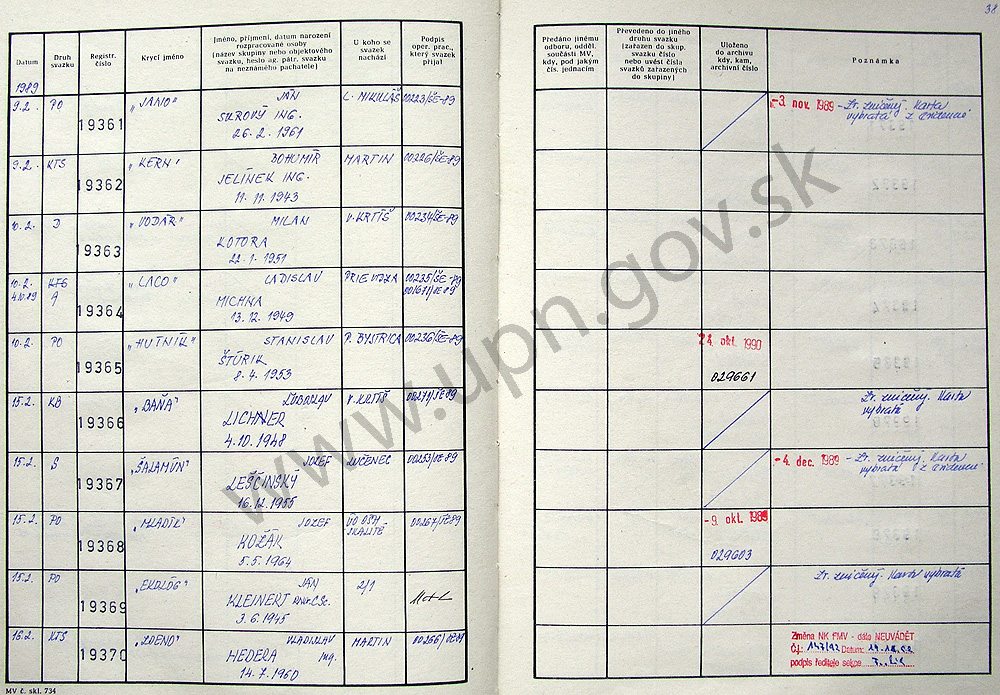 38
Datum
Druh svazku
Registr. číslo
Krycí jméno
Jméno, příjmení, datum narození rozpracované osoby (název skupiny nebo objektového svazku, heslo ag. pátr. svazku na neznámého pachatele)
U koho se svazek nachází
Podpis oper. prac., který svazek přijal
Předáno jinému odboru, odděl. součásti MV, kdy, pod jakým čís. jednacím
Převedeno do jiného druhu svazku (zařazen do skup. svazku číslo nebo uvést čísla svazků zařazených do skupiny)
Uloženo do archivu kdy, kam, archivní číslo
Poznámka
1989
9.2. PO 19361 "JANO" JÁN L. MIKULÁŠ 00223/ŠE-89 -3. nov. 1989 - Zv. zničený. Karta
SUROVÝ ING. vybratá z evidencie
26. 2. 1961
9.2. KTS 19362 "KERN" BOHUMÍR MARTIN 00226/ŠE-89
JELÍNEK ING.
11. 11. 1943
10.2. D 19363 "VODÁR" MILAN V. KRTÍŠ 00234/ŠE-89
KOTORA
22. 1. 1951
10.2. 19364 "LACO" LADISLAV PRIEVIDZA 00235/ŠE-89
4.10.89 A MICHNA
13. 12. 1949
10.2. PO 19365 "HUTNÍK" STANISLAV P. BYSTRICA 00236/ŠE-89 24. okt. 1990
ŠTÚRIK 029661
8. 4. 1953
15.2. KB 19366 "BAŇA" ĽUBOSLAV V. KRTÍŠ Zv. zničený. Karta
LICHNER vybratá
4. 10. 1948
15.2. S 19367 "ŠALAMÚN" JOZEF LUČENEC -4. dec. 1989 - Zv. zničený. Karta
LEŠČINSKÝ vybratá z evidencie
16. 12. 1955
15.2. PO 19368 "MLADÍK" JOZEF -9. okt. 1989
KOŽÁK SKALITÉ 029603
5. 5. 1964
15.2. PO 19369 "EKOLÓG" JÁN 2/1 Zv. zničený. Karta vybratá
KLEINERT
3. 6. 1945
16.2. KTS 19370 "ZDENO" VLADISLAV MARTIN
HEDERA Ing.
14. 7. 1960
Změna NK FMV - dále NEUVÁDĚT
Č.j.: Datum:
podpis ředitele sekce
MV č. skl. 734
www.upn.gov.sk